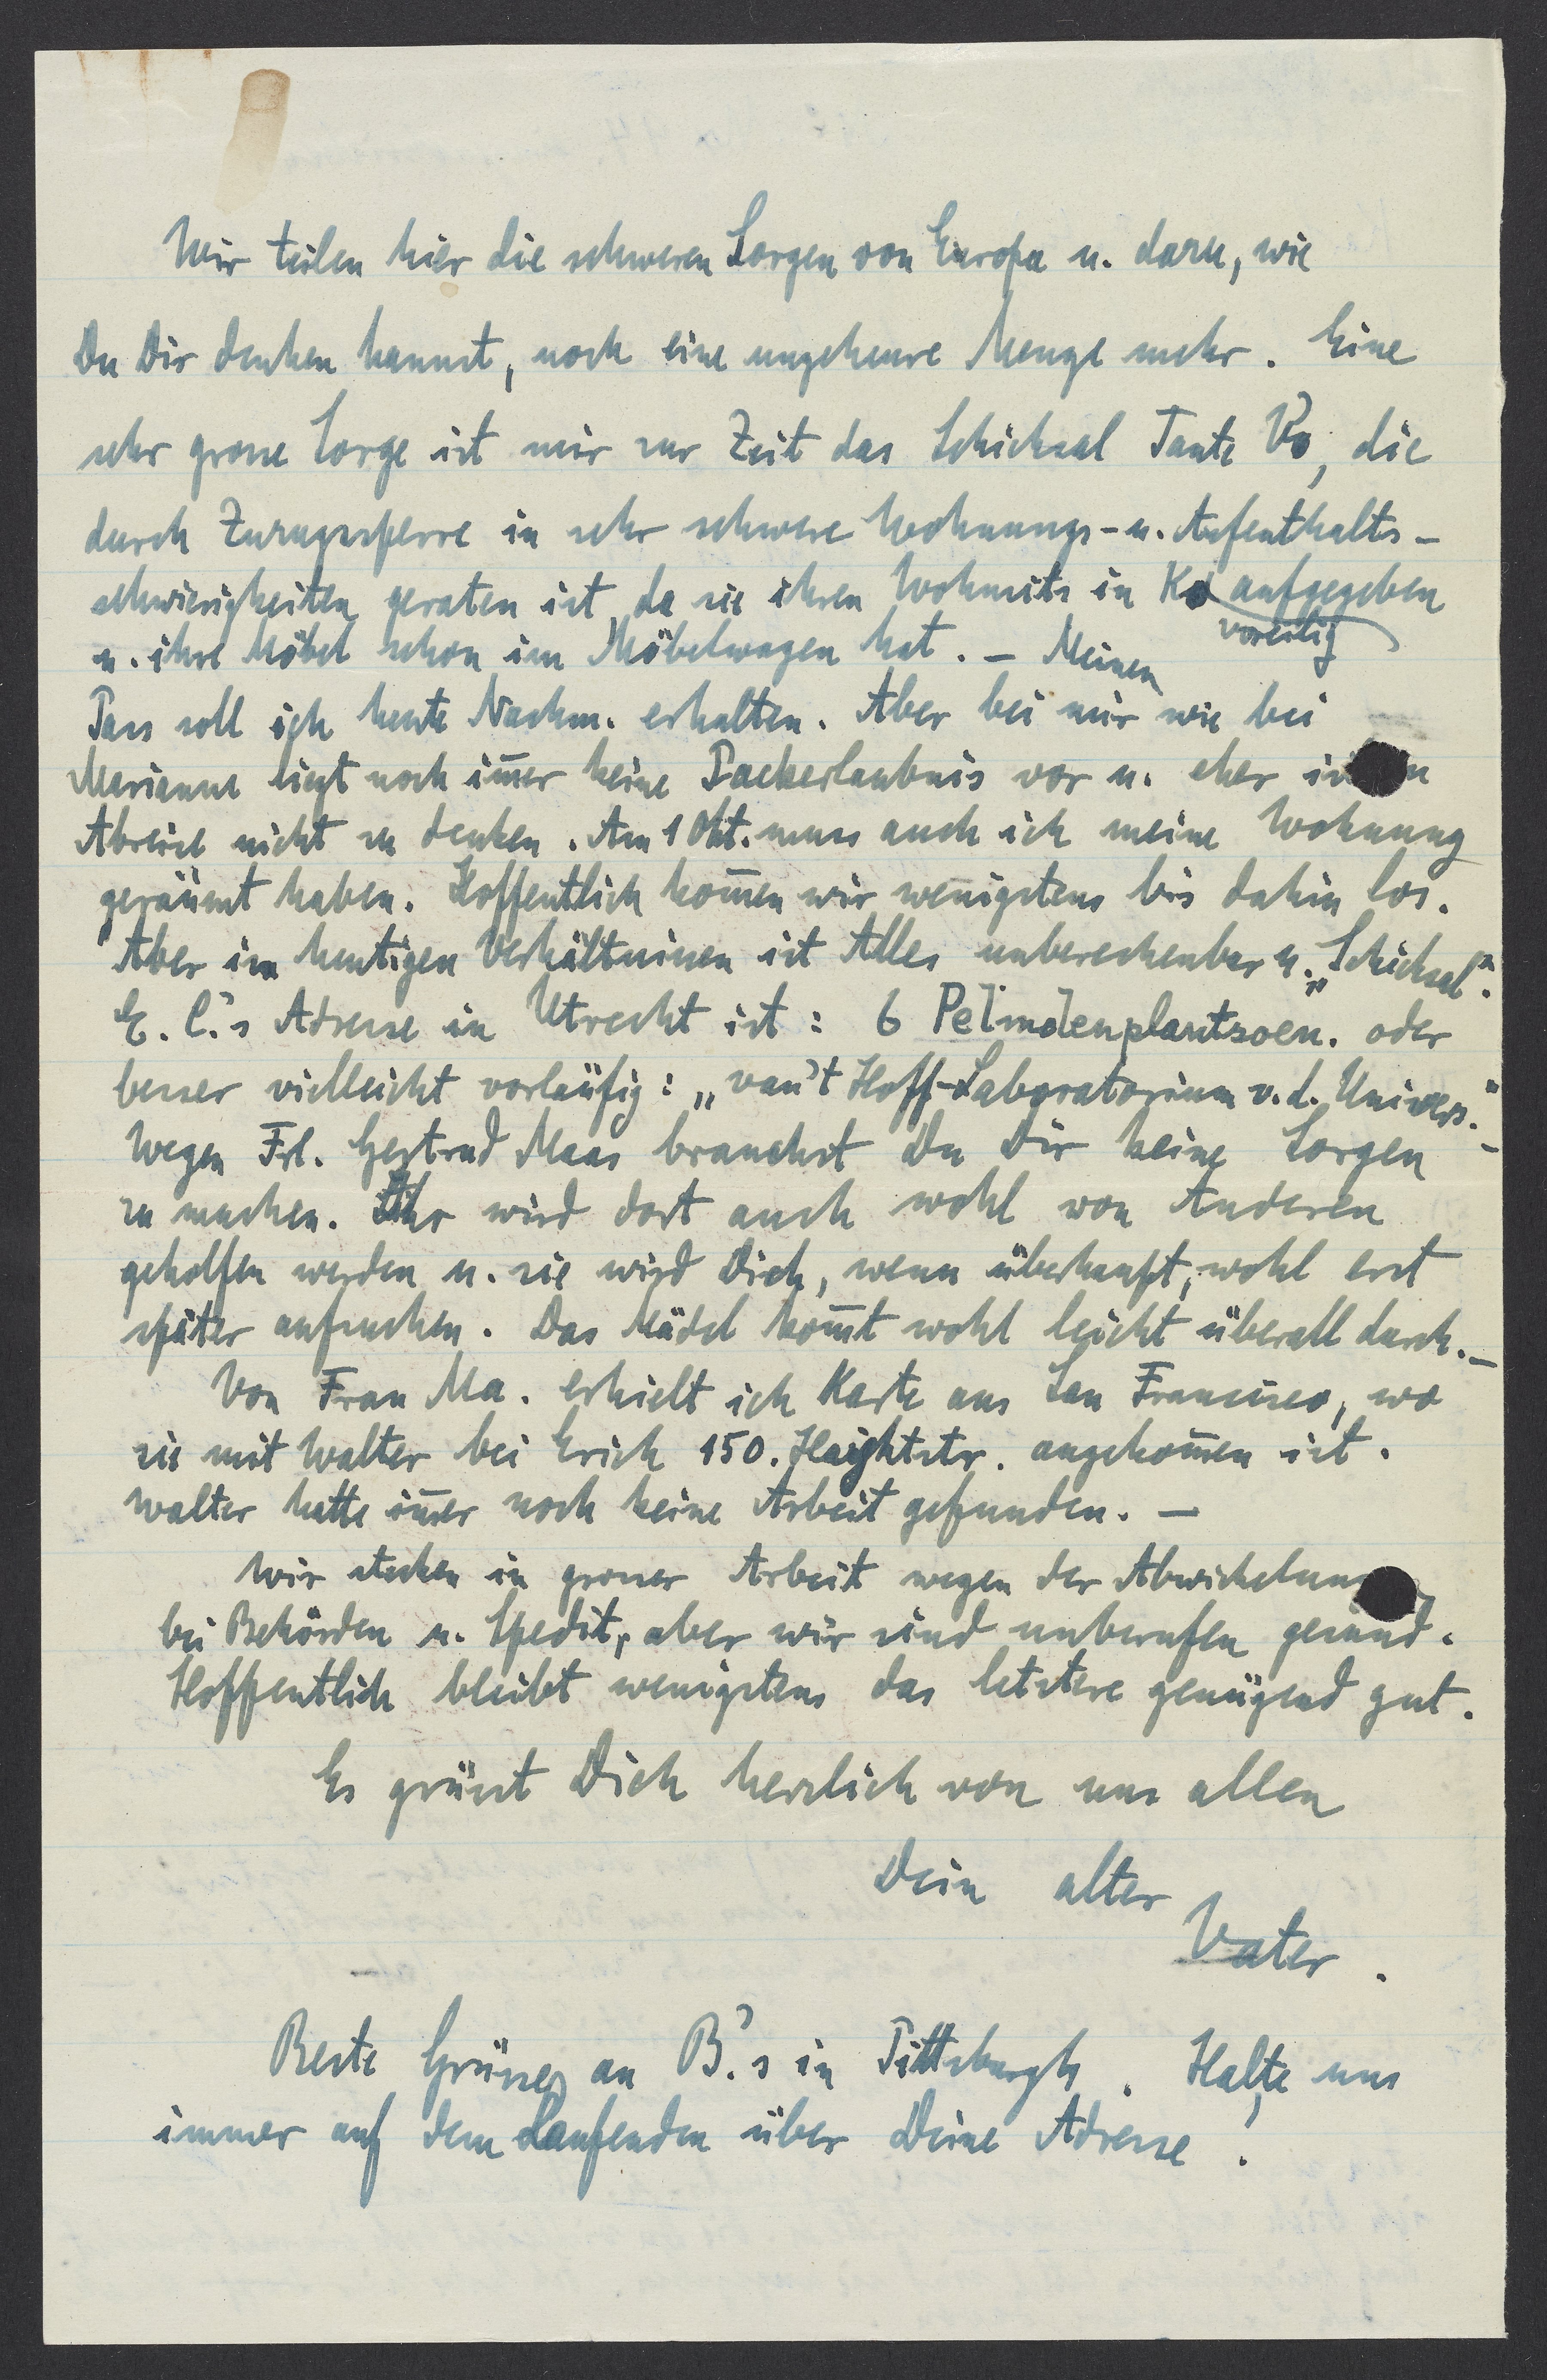 Wir teilen hier die schweren Sorgen von Europa u. dazu, wie
Du Dir denken kannst, noch eine ungeheure Menge mehr. Eine
sehr grosse Sorge ist mir zur Zeit das Schicksal Tante Vo, die
durch Zuzugssperre in sehr schwere Wohnungs- u. Aufenthalts-
schwierigkeiten geraten ist, da sie ihren Wohnsitz in Kö aufgegeben
voreilig
u. ihre Möbel schon im Möbelwagen hat. – Meinen
Pass soll ich heute Nachm. erhalten. Aber bei mir wie bei
Marianne liegt noch im̅er keine Packerlaubnis vor u. eher ist an
Abreise nicht zu denken. Am 1 Okt. muss auch ich meine Wohnung
geräumt haben. Hoffentlich kom̅en wir wenigstens bis dahin los.
Aber im heutigen Verhältnissen ist Alles unberechenbar u. „Schicksal".
E. C.'s Adresse in Utrecht ist: 6 oder
besser vielleicht vorläufig: „van't Hoff-Laboratorium v. d. Univers." –
Wegen Frl. Gertrud Maas brauchst Du Dir keine Sorgen
zu machen. Ihr wird dort auch wohl von Anderen
geholfen werden u. sie wird Dich, wenn überhaupt, wohl erst
später aufsuchen. Das Mädel kom̅t wohl leicht überall durch. –
Von Frau Ma. erhielt ich Karte aus San Francisco, wo
sie mit Walter bei Erich 150. Haightstr. angekom̅en ist.
Walter hatte im̅er noch keine Arbeit gefunden. –
Wir stecken in grosser Arbeit wegen der Abwickelung
bei Behörden u. Spedit., aber wir sind unberufen gesund.
Hoffentlich bleibt wenigstens das letztere genügend gut.
Es grüsst Dich herzlich von uns allen
Dein alter
Vater.
Beste Grüsse an B.'s in Pittsburgh. Halte uns
immer auf dem Laufenden über Deine Adresse!